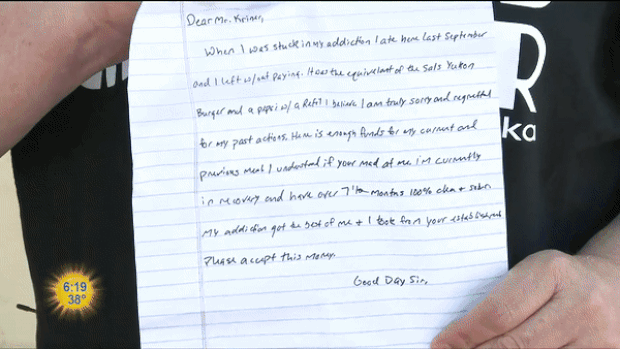 Dear Mr. Kriner,
When I was stuck in my addiction I ate here last September
and I left w/out paying. I took the equivalent of the Sals Yukon
Burger and a pepsi w/ a Refill I believe. I am truly sorry and regretful
for my past actions. Here is enough funds for my current and
previous meal. I understand if your mad at me. I'm currently
in recovery and have over 7 1/2 months 100% clean & sober.
My addiction got the best of me & I took from your establishment
Please accept this money.
Good Day Sir,
R
ka
6:19
38°